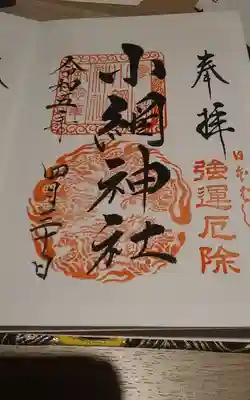 奉拝
強運厄除
小網神社
令和五年
四月二十日